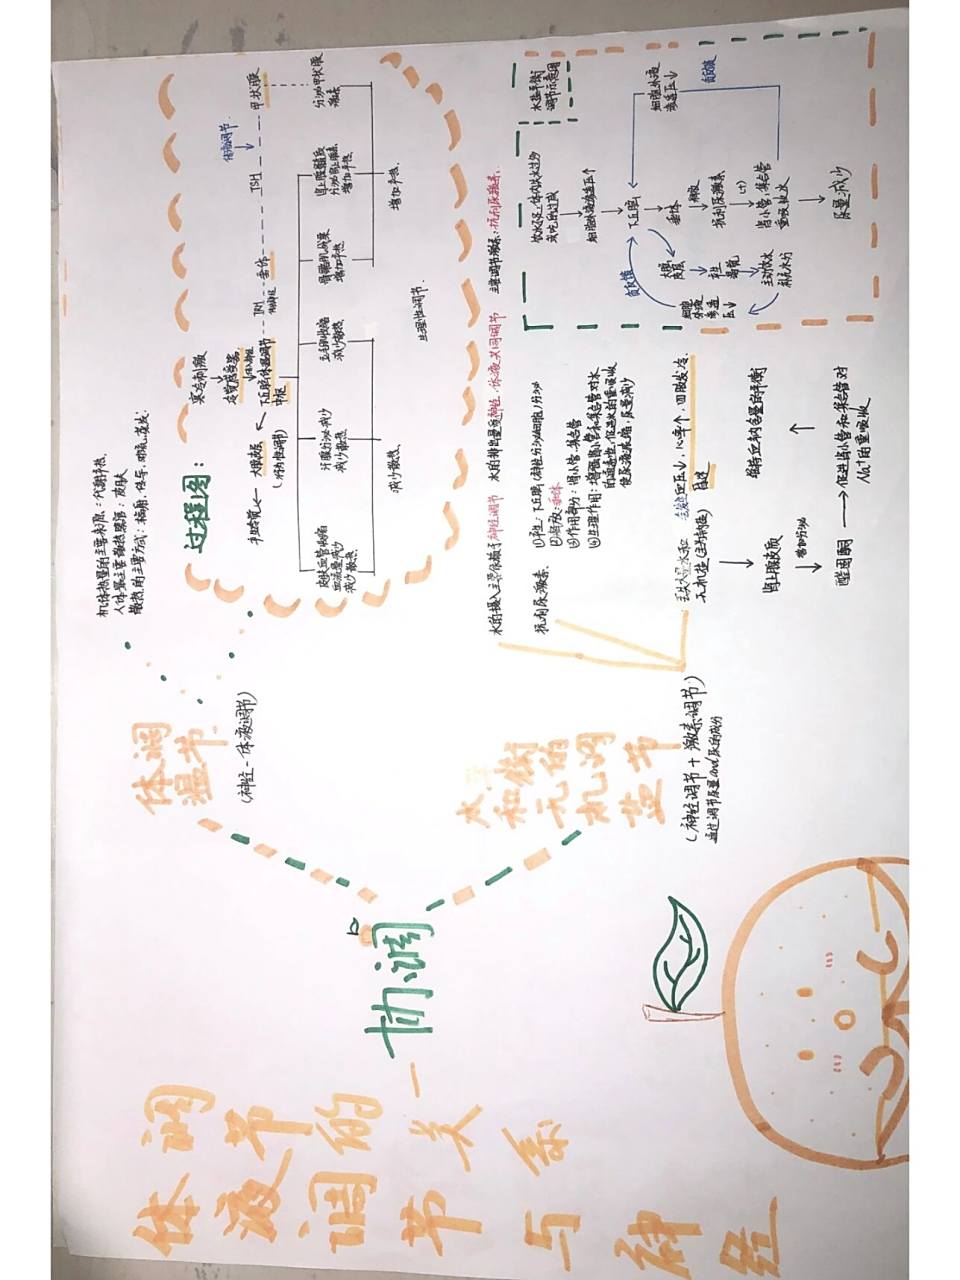 体液调节与神经
调节的关系
协调
体温
调节
(神经-体液调节)
机体热量的主要来源：代谢产热
人体最主要散热器官：皮肤
散热的主要方式：辐射、传导、对流、蒸发
过程图：
寒冷刺激
皮肤感受器
下丘脑体温调节
中枢
大脑皮层
(行为性调节)
TRH
垂体
TSH
甲状腺
体液调节
皮肤血管收缩
血流量减少
减少散热
汗腺分泌减少
减少散热
立毛肌收缩
减少散热
骨骼肌战栗
增加产热
肾上腺髓质
分泌肾上腺素
增加产热
分泌甲状腺
激素
减少散热
增加产热
生理性调节
水和无机
盐平衡的
调节
(神经调节+激素调节)
通过调节尿量and尿的成分
水的摄入主要依赖于神经调节 水的排出量受神经、体液共同调节 主要调节激素：抗利尿激素
抗利尿激素
①产生：下丘脑(神经分泌细胞)分泌
②释放：垂体
③作用部分：肾小管、集合管
④生理作用：增强肾小管和集合管对水
的通透性，促进水的重吸收
使尿液浓缩，尿量减少
丢失大量水和
无机盐(主要钠盐)
血压↓，心率↑，四肢发冷
昏迷
肾上腺皮质
增加分泌
醛固酮
促进肾小管和集合管对
Na⁺的重吸收
维持血钠含量的平衡
水盐平衡
调节示意图
饮水不足、体内失水过多
或吃的过咸
细胞外液渗透压↑
下丘脑
垂体
释放
抗利尿激素
(+)
肾小管、集合管
重吸收水
尿量减少
细胞外液
渗透压↓
负反馈
大脑
皮层
产生
渴觉
主动饮水
补充水分
细胞
外液
渗透
压↓
负反馈